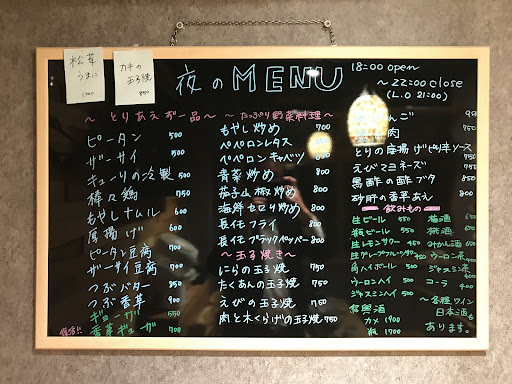 松茸
うまに
カキの
玉子焼
850
夜のMENU
18:00 open
~ 22:00 close
(L.O 21:00)
~ とりあえず一品 ~
ピータン 500
ザーサイ 500
キューリの冷製 500
棒々鶏 750
もやしナムル 600
厚揚げ 600
ピータン豆腐 700
ザーサイ豆腐 700
つぶバター 850
つぶ香草 900
ギョーザ 550
香菜ギョーザ 700
復活!!
~ たっぷり野菜料理 ~
もやし炒め 700
ペペロンレタス 800
ペペロンキャベツ 800
青菜炒め 800
茄子山椒炒め 800
海鮮セロリ炒め 800
長イモフライ 800
長イモブラックペッパー 800
~ 玉子焼き ~
にらの玉子焼 750
たくあんの玉子焼 750
えびの玉子焼 750
肉と木くらげの玉子焼 750
とりの唐揚げピリ辛ソース 750
えびマヨネーズ
黒酢の酢ブタ
砂肝の香草あえ 800
~ 飲みもの ~
生ビール 550
瓶ビール
生レモンサワー 450
生グレープフルーツサワー
角ハイボール
ウーロンハイ
ジャスミンハイ
紹興酒
カメ 1900
瓶 1700
梅酒
桃酒
みかん酒
ウーロン茶
ジャスミン茶
コーラ
~ 各種ワイン
日本酒も
あります。